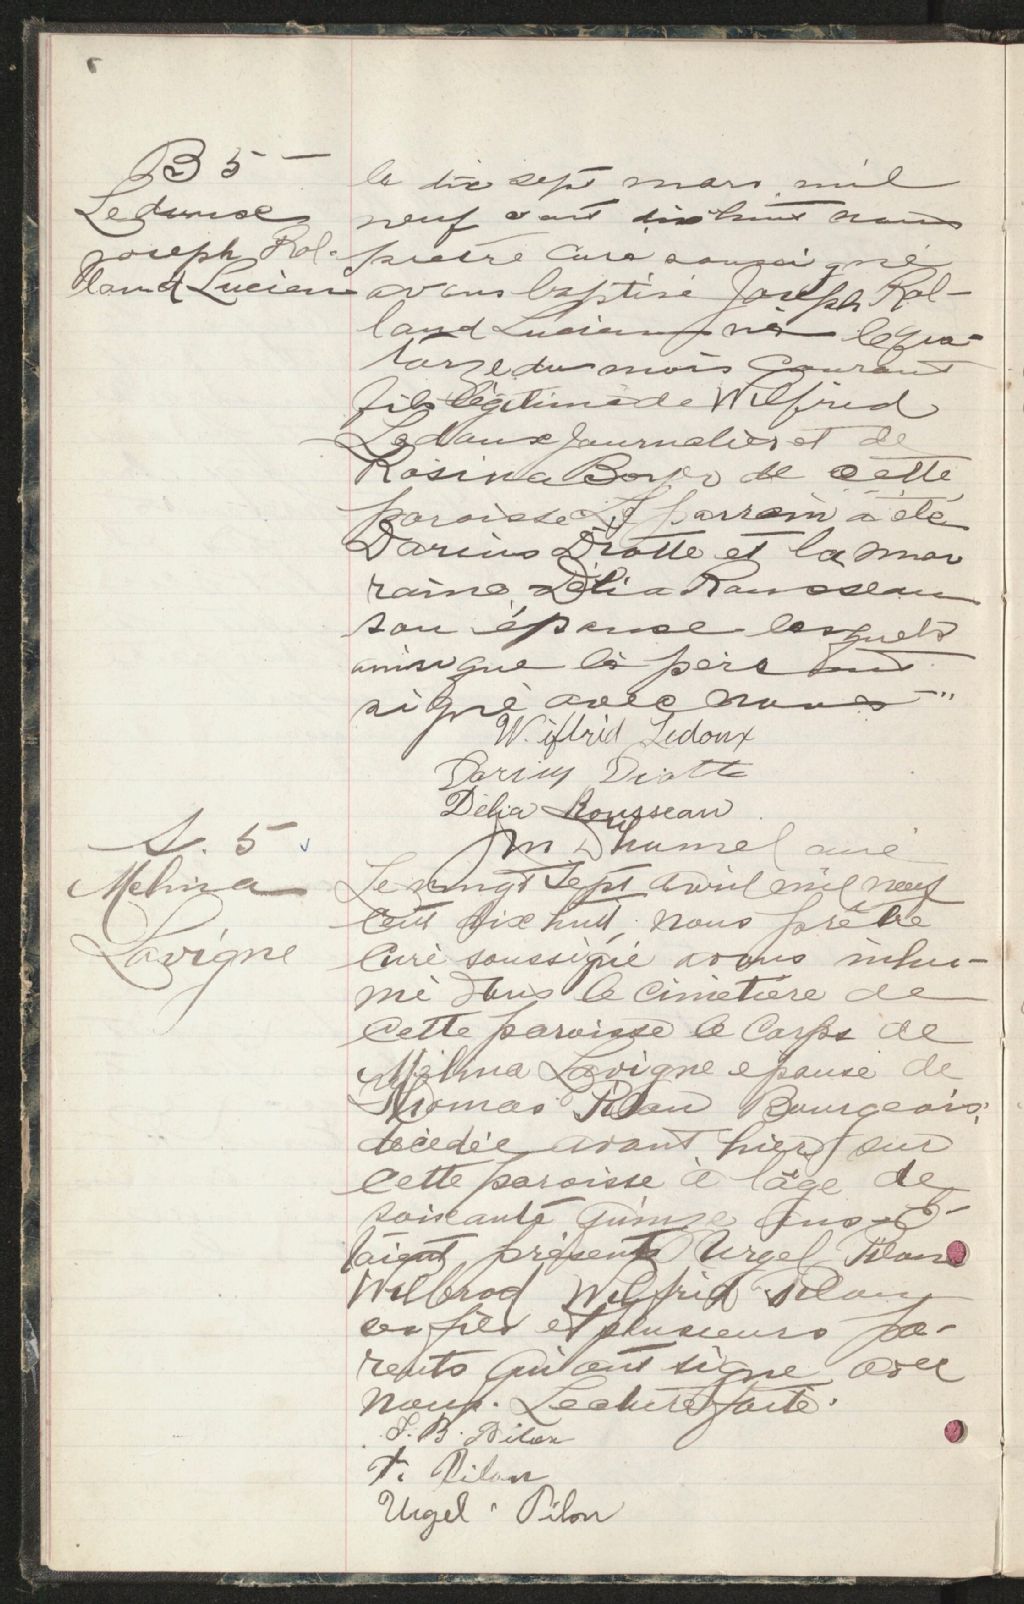 B 5 –
Ledoux
Joseph Rol-
land Lucien
le dix sept mars mil
neuf cent dix huit nous
pretre curé soussigné
avons baptisé Joseph Rol-
land Lucien né le qua-
torze du mois courant
fils légitime de Wilfrid
Ledoux journalier et de
Rosina Boyer de cette
paroisse Le parrain a été
Darius Diotte et la mar
raine Délia Rousseau
son épouse lesquels
ainsi que le père ont
signé avec nous –"
Wilfrid Ledoux
Darius Diotte
Délia Rousseau
curé
S. 5
Melina
Lavigne
Le vingt sept avril mil neuf
cent dix huit, nous prêtre
curé soussigné avons inhu-
mé dans le cimetiere de
cette paroisse le corps de
Melina Lavigne epouse de
Thomas Pilon Bourgeois,
décédée avant hier sur
cette paroisse à l'âge de
soixante quinze ans. E-
taient présents Urgel Pilon
Wilbrod Wilfrid Pilon
ses fils et plusieurs pa-
rents qui ont signé avec
nous. Lecture faite.
J. B. Pilon
T. Pilon
Urgel Pilon